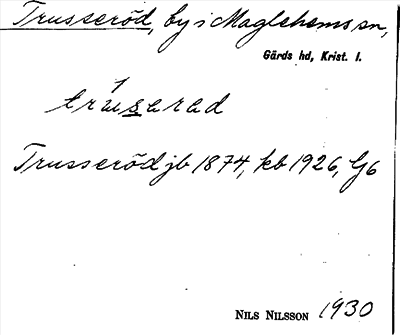 Trusseröd, by i Maglehems sn,
Gärds hd, Krist. l.
trusarad
Trusseröd jb 1874, kb 1926, G6
NILS NILSSON 1930